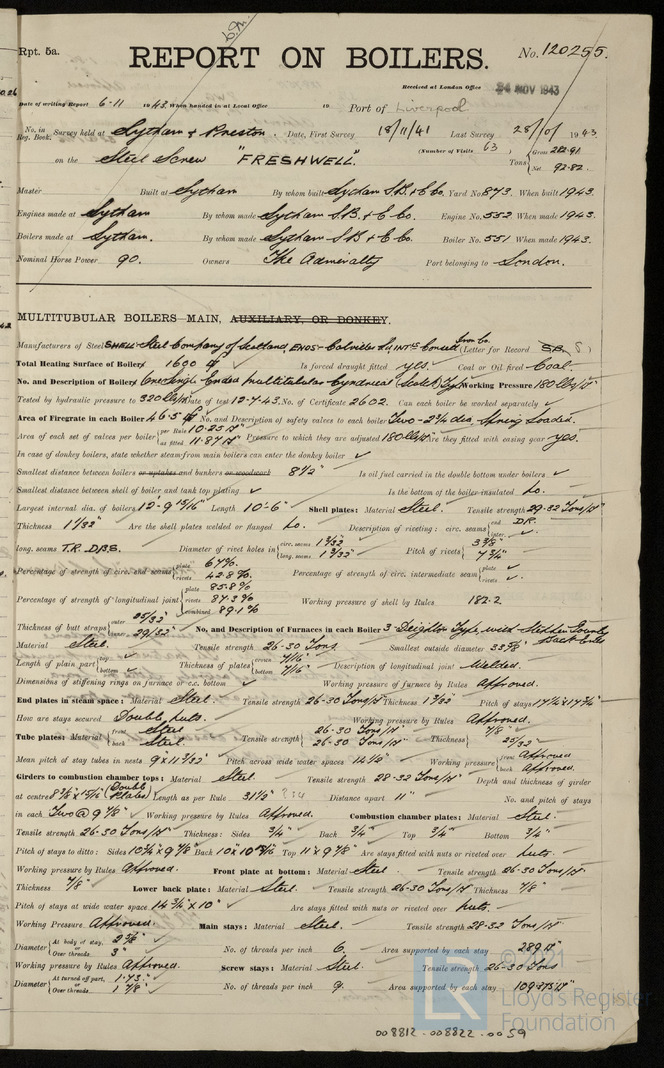 Rpt. 5a.
REPORT ON BOILERS.
No. 120255.
Received at London Office 24 NOV 1943
Date of writing Report 6-11 1943 When handed in at Local Office 19 Port of Liverpool
No. in Reg. Book. Survey held at Lytham & Preston. Date, First Survey 18/11/41 Last Survey 28/10/1943
on the Steel Screw "FRESHWELL". (Number of Visits 63) Tons Gross 282.91 Net 92.82.
Master Built at Lytham By whom built Lytham S.B. & E. Co. Yard No. 873. When built 1943.
Engines made at Lytham By whom made Lytham S.B. & E. Co. Engine No. 552 When made 1943.
Boilers made at Lytham. By whom made Lytham S.B. & E. Co. Boiler No. 551 When made 1943.
Nominal Horse Power 90. Owners The Admiralty Port belonging to London.
MULTITUBULAR BOILERS MAIN, AUXILIARY, OR DONKEY.
Manufacturers of Steel SHELL - Steel Company of Scotland, ENDS - Colvilles Ld, INTS Consett Iron Co. (Letter for Record S)
Total Heating Surface of Boilers 1690 Is forced draught fitted yes. Coal or Oil fired Coal.
No. and Description of Boilers One Single Ended Multitubular Cylindrical (Scotch) Type Working Pressure 180 lbs/□"
Tested by hydraulic pressure to 320 lbs/□" Date of test 12-7-43. No. of Certificate 2602. Can each boiler be worked separately ✓
Area of Firegrate in each Boiler 46.5 No. and Description of safety valves to each boiler Two - 2¾ dia. Spring Loaded.
Area of each set of valves per boiler per Rule 10.25 □" as fitted 11.87 □" Pressure to which they are adjusted 180 lbs/□" Are they fitted with easing gear yes.
In case of donkey boilers, state whether steam from main boilers can enter the donkey boiler ✓
Smallest distance between boilers or uptakes and bunkers or woodwork 8½" Is oil fuel carried in the double bottom under boilers ✓
Smallest distance between shell of boiler and tank top plating ✓ Is the bottom of the boiler insulated No.
Largest internal dia. of boilers 12'-9 15/16" Length 10'-6" Shell plates: Material Steel. Tensile strength 29-32 Tons/□"
Thickness 1 1/32" Are the shell plates welded or flanged No. Description of riveting: circ. seams end D.R. inter. ✓
long. seams T.R. D.B.S. Diameter of rivet holes in circ. seams 1 3/32" long. seams 1 3/32" Pitch of rivets 3 3/8" 7 3/4"
Percentage of strength of circ. end seams plate 67% rivets 42.8% Percentage of strength of circ. intermediate seam plate ✓ rivets ✓
Percentage of strength of longitudinal joint plate 85.8% rivets 87.3% combined 89.1% Working pressure of shell by Rules 182.2
Thickness of butt straps outer 25/32" inner 29/32" No. and Description of Furnaces in each Boiler 3 - Deighton Type with
Material Steel. Tensile strength 26-30 Tons Smallest outside diameter
Length of plain part top ✓ bottom ✓ Thickness of plates crown 7/16" bottom 7/16" Description of longitudinal joint Welded.
Dimensions of stiffening rings on furnace or c.c. bottom ✓ Working pressure of furnace by Rules Approved.
End plates in steam space: Material Steel Tensile strength 26-30 Tons/□" Thickness 1 1/32" Pitch of stays 17¼ x 17¾"
How are stays secured Double Nuts. Working pressure by Rules Approved.
Tube plates: Material front Steel back Steel. Tensile strength 26-30 Tons/□" 26-30 Tons/□" Thickness 7/8" 25/32"
Mean pitch of stay tubes in nests 9 x 11 3/32" Pitch across wide water spaces 14½" Working pressure front Approved back Approved.
Girders to combustion chamber tops: Material Steel. Tensile strength 28-32 Tons/□" Depth and thickness of girder
at centre (Double Plates) Length as per Rule 31½" Distance apart 11" No. and pitch of stays
in each Two @ 9 7/8" Working pressure by Rules Approved. Combustion chamber plates: Material Steel.
Tensile strength 26-30 Tons/□" Thickness: Sides 3/4" Back 3/4" Top 3/4" Bottom 3/4"
Pitch of stays to ditto: Sides 10¾ x 9 7/8" Back Top 11 x 9 7/8" Are stays fitted with nuts or riveted over Nuts.
Working pressure by Rules Approved. Front plate at bottom: Material Steel Tensile strength 26-30 Tons/□"
Thickness 7/8" Lower back plate: Material Steel. Tensile strength 26-30 Tons/□" Thickness 7/8"
Pitch of stays at wide water space 14¾ x 10" Are stays fitted with nuts or riveted over Nuts.
Working Pressure Approved. Main stays: Material Steel. Tensile strength 28-32 Tons/□"
Diameter At body of stay, or Over threads 3" No. of threads per inch 6. Area supported by each stay 289 □"
Working pressure by Rules Approved. Screw stays: Material Steel. Tensile strength 26-30 Tons
Diameter At turned off part, 1.73" or Over threads 1 7/8" No. of threads per inch 9. Area supported by each stay 109.375 □"
© 2021
LR
Lloyd's Register
Foundation
008812-008822-0059